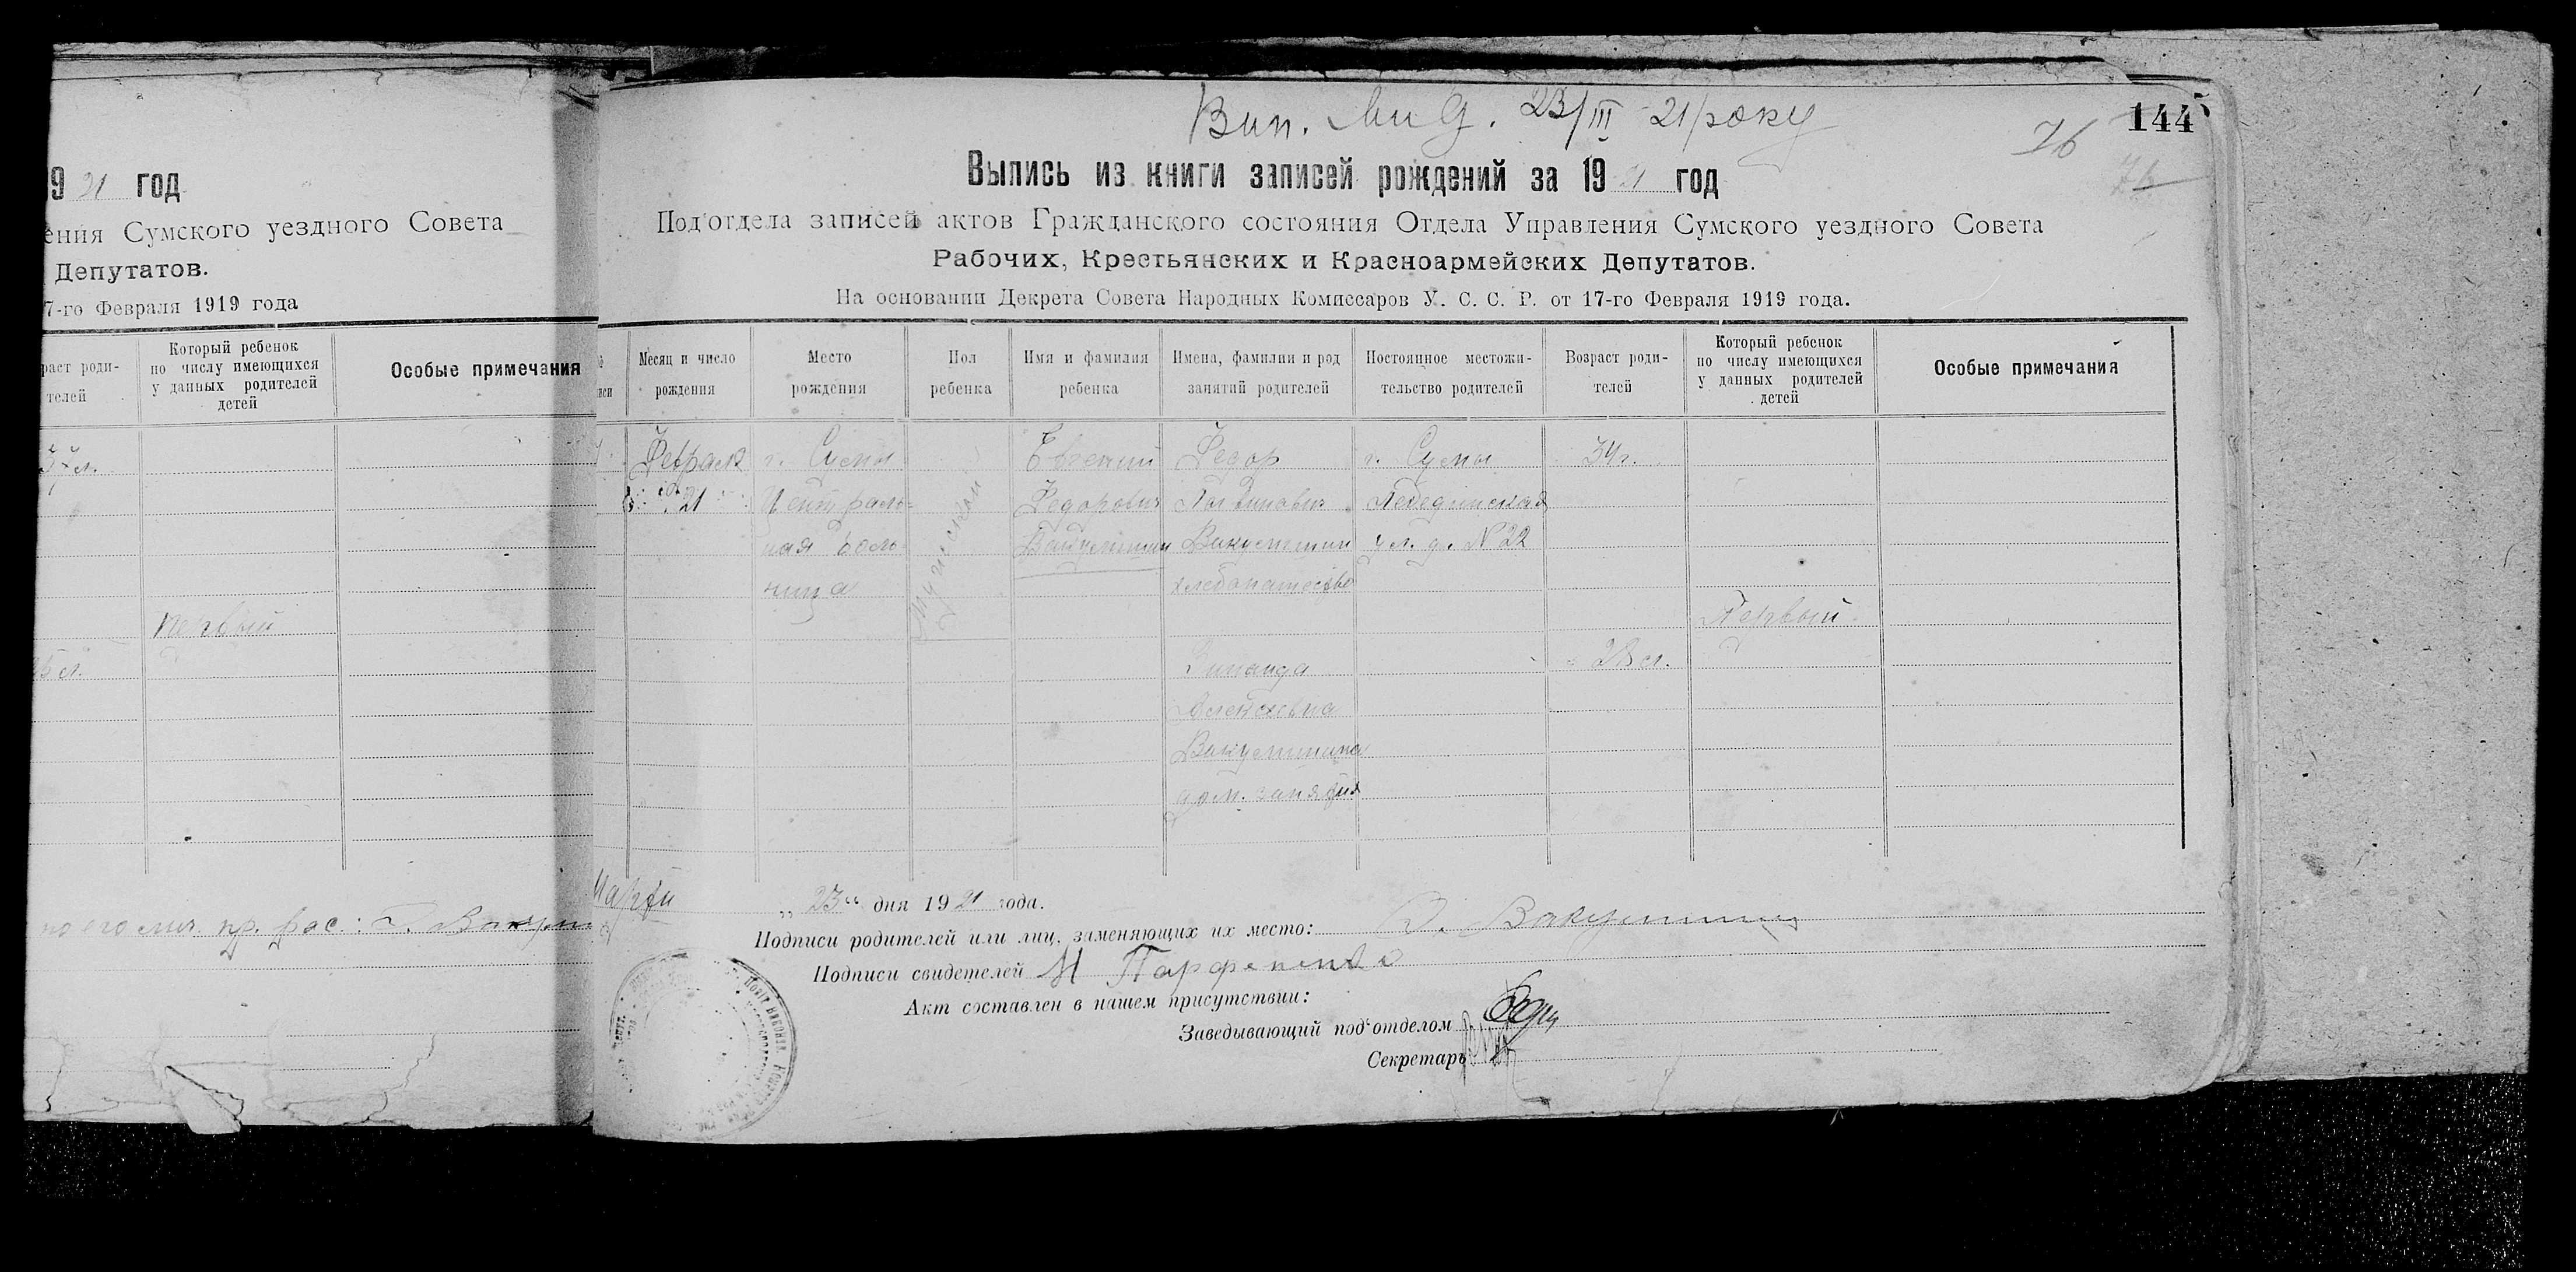 9 21 год
ения Сумского уездного Совета
Депутатов.
7-го Февраля 1919 года
раст роди-
телей
Который ребенок
по числу имеющихся
у данных родителей
детей
Особые примечания
первый
Вип. 23/III 21 року
76
144
Выпись из книги записей рождений за 19 21 год
Под'отдела записей актов Гражданского состояния Отдела Управления Сумского уездного Совета
Рабочих, Крестьянских и Красноармейских Депутатов.
На основании Декрета Совета Народных Комиссаров У. С. С. Р. от 17-го Февраля 1919 года.
Месяц и число
рождения
Место
рождения
Пол
ребенка
Имя и фамилия
ребенка
Имена, фамилии и род
занятий родителей
Постоянное местожи-
тельство родителей
Возраст роди-
телей
Который ребенок
по числу имеющихся
у данных родителей
детей
Особые примечания
Февраля
21
г. Сумы
Централь-
ная боль-
ница
Мужской
Евгений
Федорович
Федор
хлебопашество
Зинаида
Алексеевна
дом. занятия
г. Сумы
Лебединская
ул. д. № 22
34 г.
28 л.
Первый
Марта
„ 23 “ дня 19 21 года.
Подписи родителей или лиц, заменяющих их место:
Подписи свидетелей
Акт составлен в нашем присутствии:
Заведывающий под'отделом
Секретарь